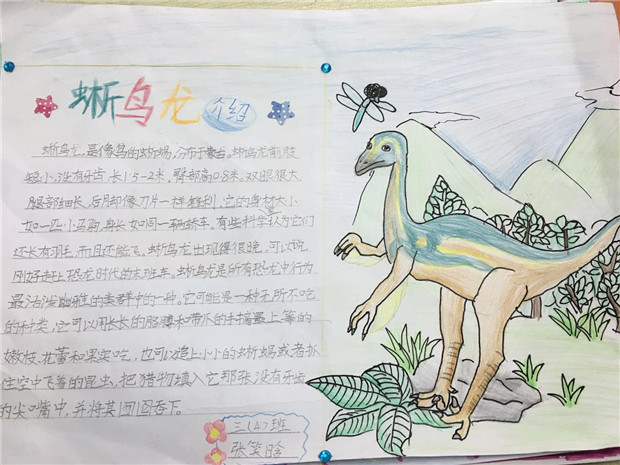 蜥鸟龙介绍
蜥鸟龙,是像鸟的蜥蜴,分布于蒙古。蜥鸟龙前肢
短小,没有牙齿,长1.5-2米,臀部高0.8米。双眼很大,
腿部细长,后肢却像刀片一样锋利,它的身材大小
如一匹小马驹,身长如同一辆轿车,有些科学认为它们
还长有羽毛,而且还能飞。蜥鸟龙出现得很晚,可以说
刚好赶上恐龙时代的末班车。蜥鸟龙是所有恐龙中行为
最活泼幽雅的类群中的一种。它可能是一种无所不吃
的种类,它可以用长长的胳膊和带爪的手摘最上等的
嫩枝、花蕾和果实吃,也可以追上小小的蜥蜴或者抓
住空中飞着的昆虫,把猎物填入它那张没有牙齿
的尖口嘴中,并将其囫囵吞下。
三(4)班
张笑晗